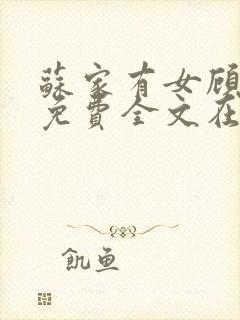 蘇家有女顾
免費全文在
飢鱼